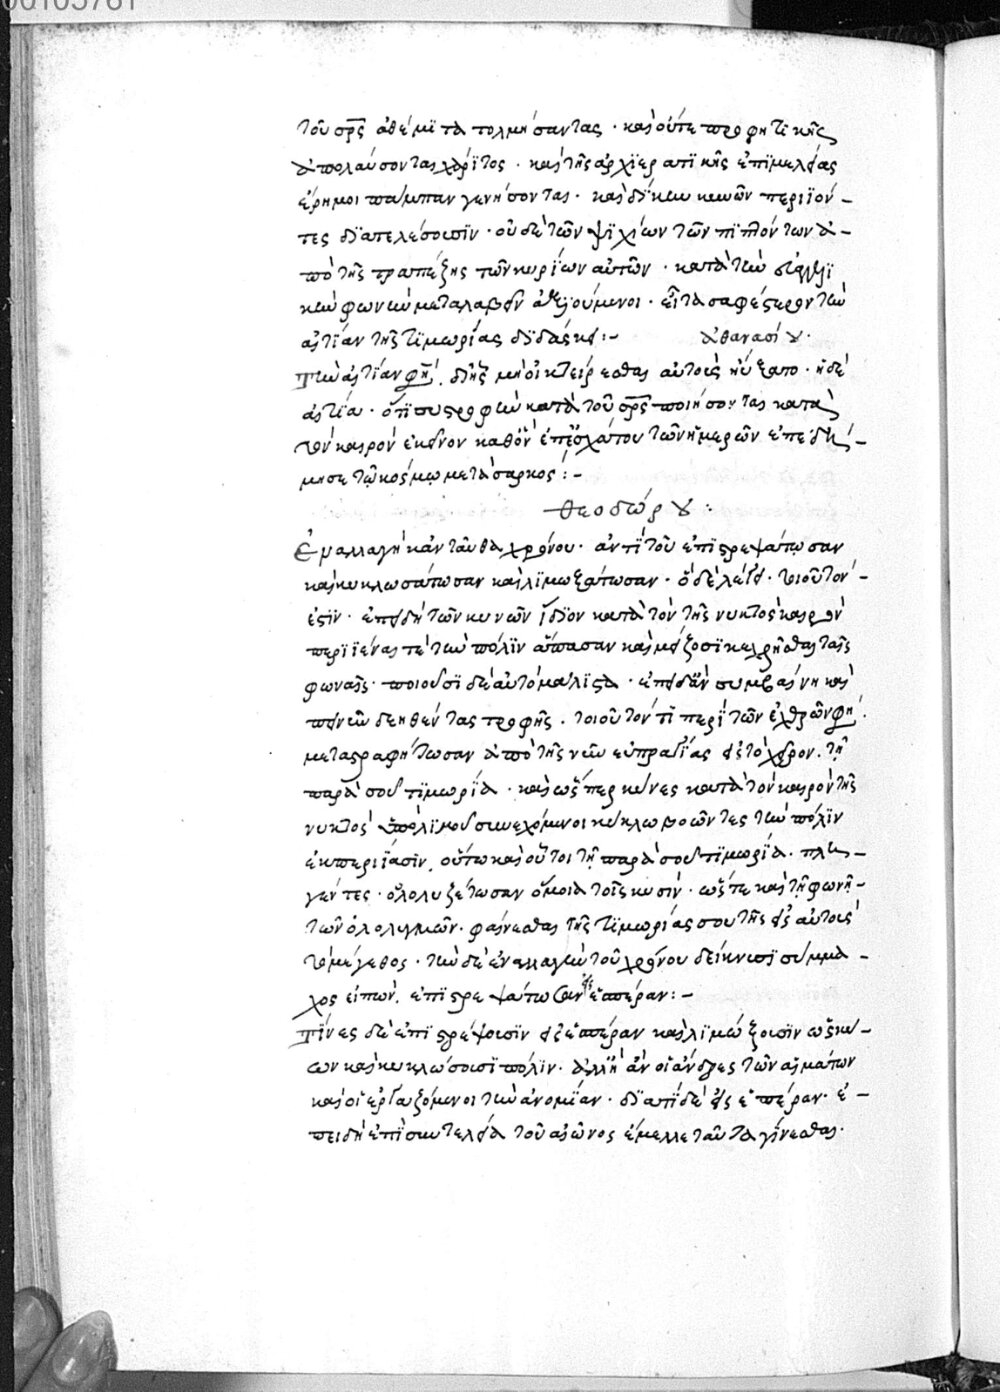 τοῦ σρς ἀθέμιτα τολμήσαντας · καὶ οὔτε προφητικῆς
ἀπολαύσονται χάριτος · καὶ τῆς ἀρχιερατικῆς ἐπιμελείας
ἔρημοι πάμπαν γενήσονται · καὶ δίκην κυνῶν περιϊόν-
τες διατελέσουσιν · οὐδὲ τῶν ψιχίων τῶν πιπτόντων ἀ-
πὸ τῆς τραπέζης τῶν κυρίων αὐτῶν · κατὰ τὴν
κὴν φωνὴν μεταλαβεῖν ἀξιούμενοι · εἶτα σαφέστερον τὴν
αἰτίαν τῆς τιμωρίας διδάσκει :- ἀθανασίου ·
Τὴν αἰτίαν φη, δι' ἧς μὴ οἰκτείρεσθαι αὐτοὺς ηὔξατο · ἡ δὲ
αἰτία · ὅτι συστροφὴν κατὰ τοῦ σρς ποιήσονται κατὰ
τὸν καιρὸν ἐκεῖνον καθ' ὃν ἐπ' ἐσχάτου τῶν ἡμερῶν ἐπεδή-
μησε τῷ κόσμῳ μετὰ σαρκός :-
θεοδώρου ·
Ἐναλλαγὴ κἀνταῦθα χρόνου · ἀντὶ τοῦ ἐπιστρεψάτωσαν
καὶ κυκλωσάτωσαν καὶ λιμωξάτωσαν · ὃ δὲ λέγει · τοιοῦτον
ἐστιν · ἐπειδὴ τῶν κυνῶν ἴδιον κατὰ τὸν τῆς νυκτὸς καιρὸν
περιϊέναι τὲ τὴν πόλιν ἅπασαν καὶ μείζοσι κεχρῆσθαι ταῖς
φωναῖς · ποιοῦσι δὲ αὐτὸ μάλιστα · ἐπειδὰν συμβαίνη καὶ
πεινῆν δεηθέντας τροφῆς · τοιοῦτόν τι περὶ τῶν ἐχθρῶν φη ·
μεταστραφήτωσαν ἀπὸ τῆς νῦν εὐπραγίας εἰς τὸ χεῖρον · τῇ
παρὰ σοῦ τιμωρία · καὶ ὥσπερ κύνες κατὰ τὸν καιρὸν τῆς
νυκτὸς ὑπὸ λιμοῦ συνεχόμενοι κύκλω βοῶντες τὴν πόλιν
ἐκπεριΐασιν, οὕτω καὶ οὗτοι τῇ παρὰ σοῦ τιμωρία · πλη-
γέντες · ὀλολυξάτωσαν ὅμοια τοῖς κυσίν · ὥστε καὶ τῇ φωνῇ-
τῶν ὀλολυγμῶν · φαίνεσθαι τῆς τιμωρίας σου τῆς εἰς αὐτοὺς
τὸ μέγεθος · τὴν δὲ ἐναλλαγὴν τοῦ χρόνου δείκνυσι σύμμα-
χος εἰπών, ἐπιστρεψάτωσαν εἰς ἑσπέραν :-
Τίνες δὲ ἐπιστρέψουσιν εἰς ἑσπέραν καὶ λιμώξουσιν ὡς κύ-
ων καὶ κυκλώσουσι πόλιν · ἀλλ' ἢ ἂν οἱ ἄνδρες τῶν αἱμάτων
καὶ οἱ ἐργαζόμενοι τὴν ἀνομίαν · διατί δὲ εἰς ἑσπέραν · ἐ-
πειδὴ ἐπὶ συντελεία τοῦ αἰῶνος ἔμελλε ταῦτα γίνεσθαι ·